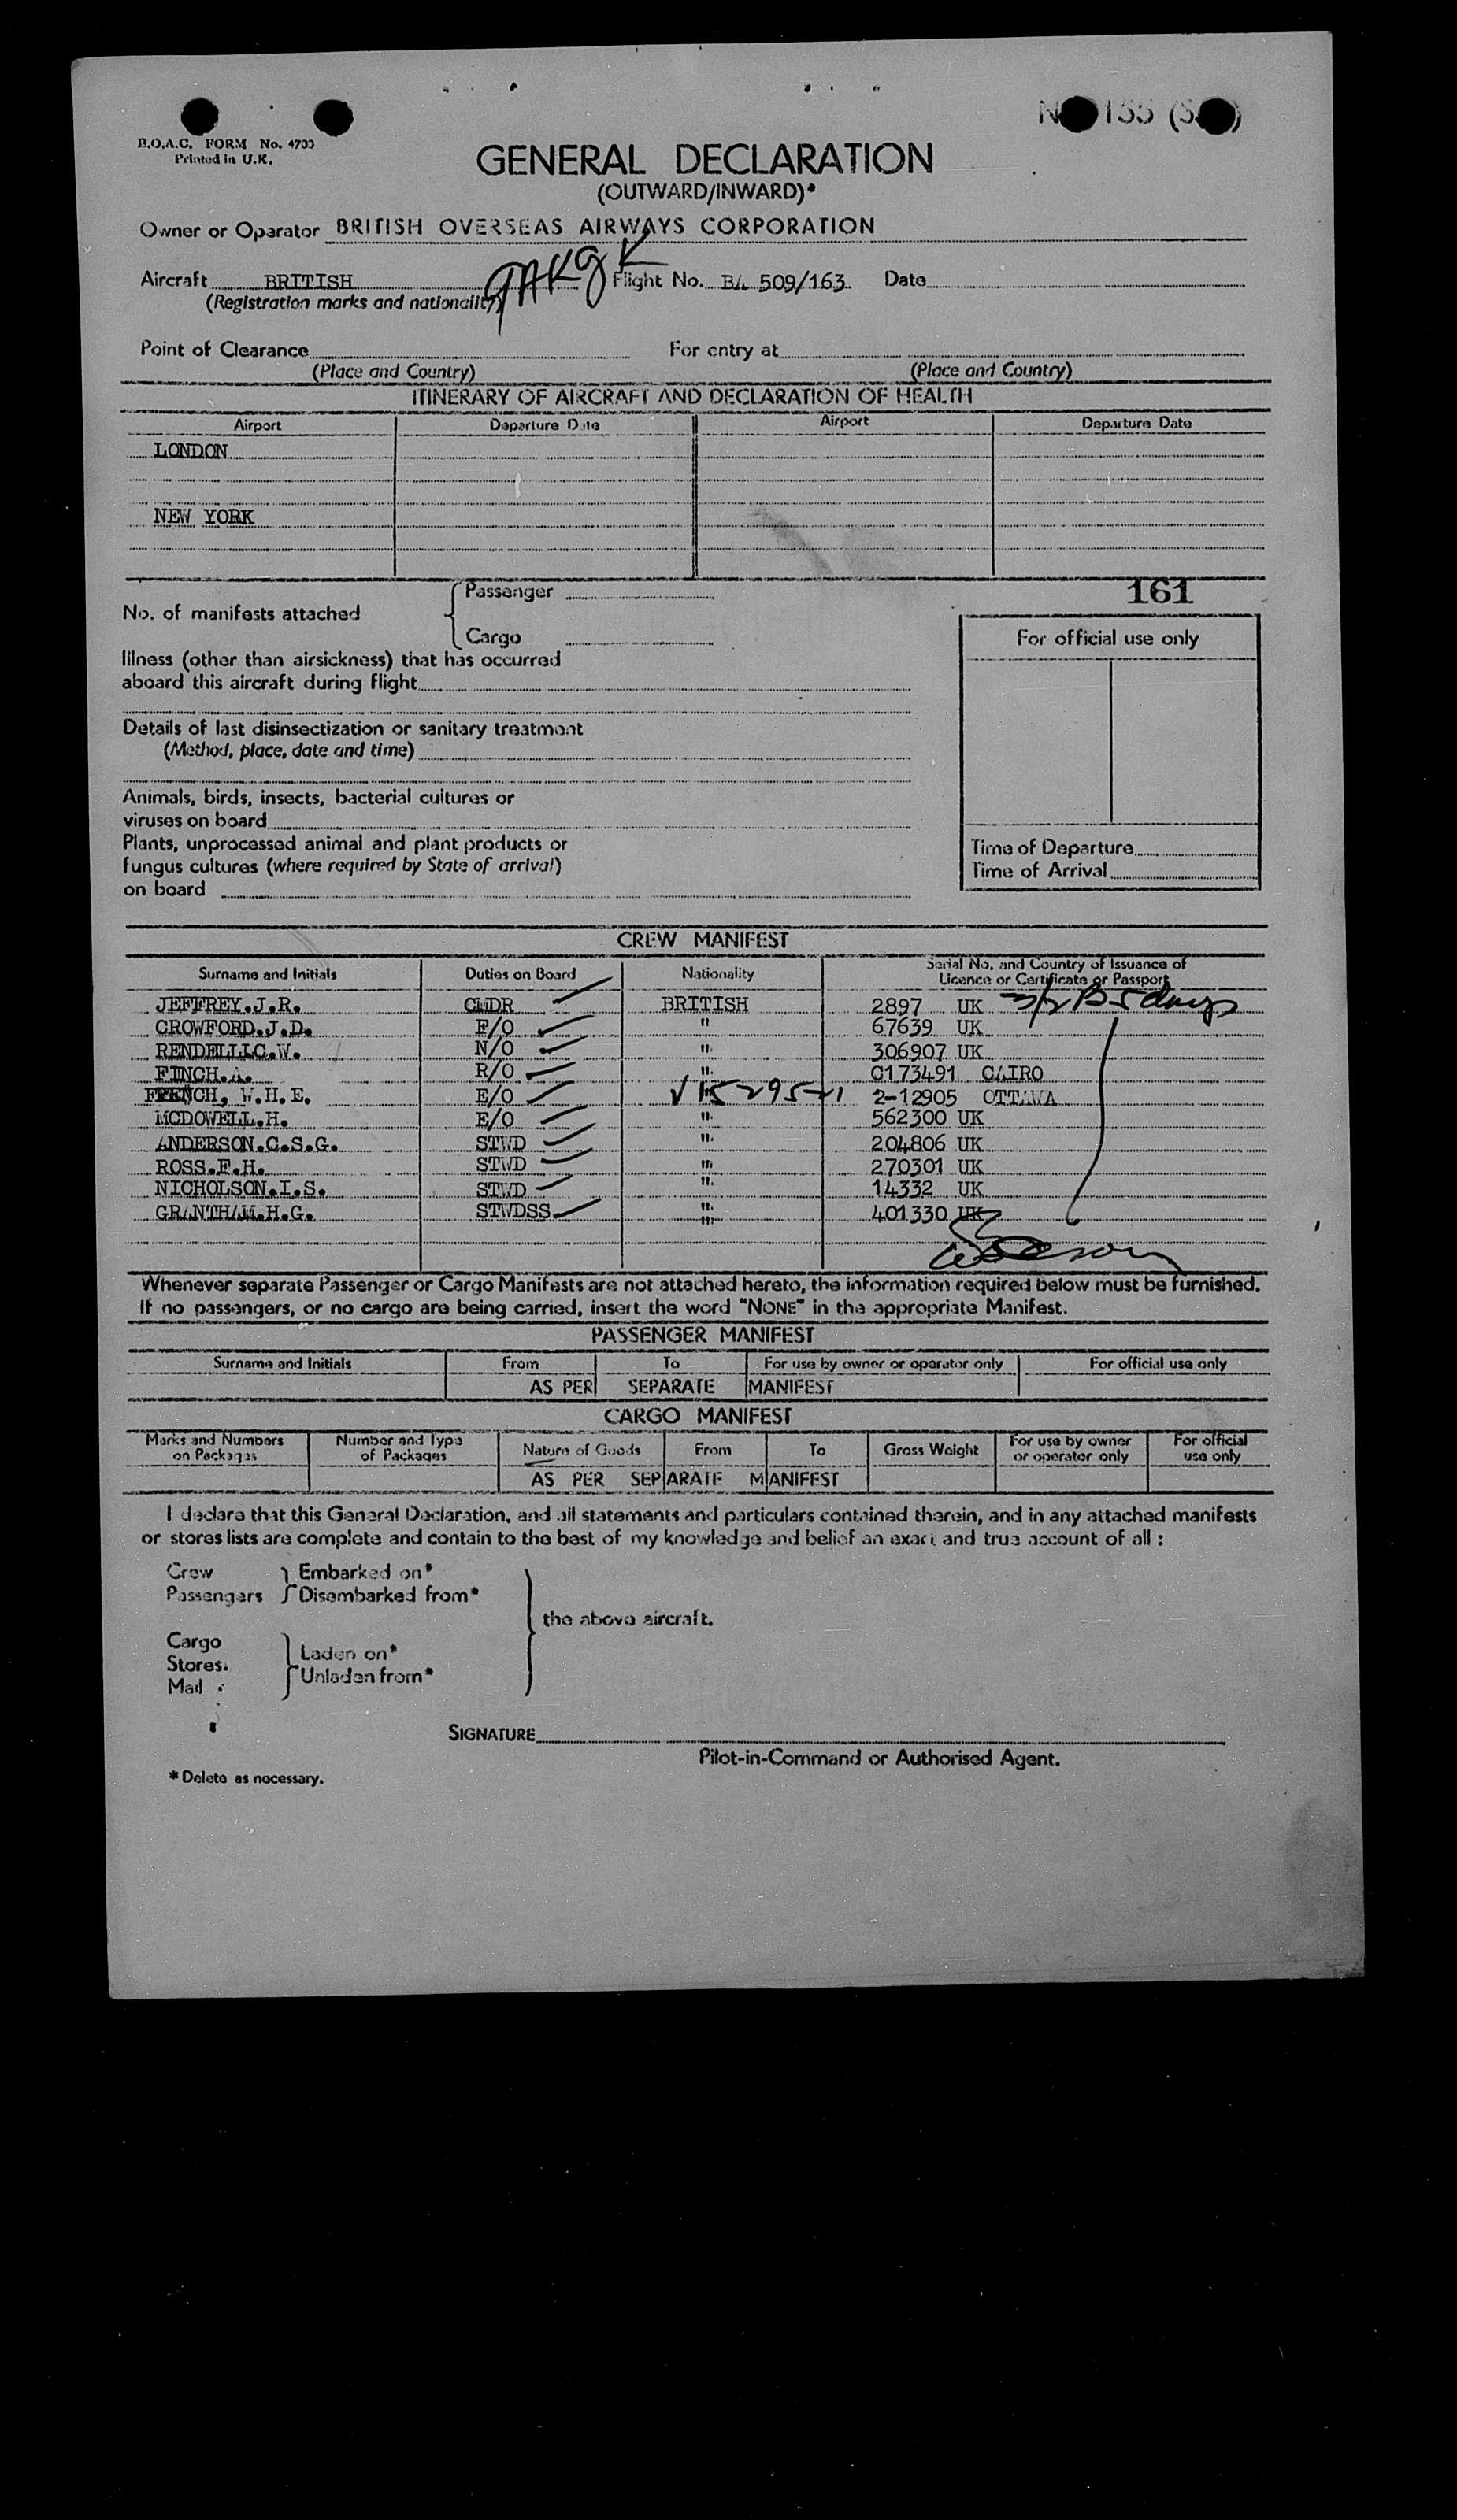 B.O.A.C. FORM No. 4703
Printed in U.K.
GENERAL DECLARATION
(OUTWARD/INWARD)*
Owner or Operator BRITISH OVERSEAS AIRWAYS CORPORATION
Aircraft BRITISH GAKGK Flight No. BA 509/163 Date
(Registration marks and nationality)
Point of Clearance For entry at
(Place and Country) (Place and Country)
ITINERARY OF AIRCRAFT AND DECLARATION OF HEALTH
Airport Departure Date Airport Departure Date
LONDON
NEW YORK
161
Passenger
No. of manifests attached
Cargo
For official use only
Illness (other than airsickness) that has occurred
aboard this aircraft during flight
Details of last disinsectization or sanitary treatment
(Method, place, date and time)
Animals, birds, insects, bacterial cultures or
viruses on board
Plants, unprocessed animal and plant products or
fungus cultures (where required by State of arrival)
on board
Time of Departure
Time of Arrival
CREW MANIFEST
Surname and Initials Duties on Board Nationality Serial No. and Country of Issuance of
Licence or Certificate or Passport
JEFFREY.J.R. CMDR BRITISH 2897 UK B 5 days
CROWFORD.J.D. F/O " 67639 UK
RENDELL.C.W. N/O " 306907 UK
FINCH.A. R/O " C173491 CAIRO
FRENCH, W.H.E. E/O 2-12905 OTTAWA
MCDOWELL.H. E/O " 562300 UK
ANDERSON.C.S.G. STWD " 204806 UK
ROSS.F.H. STWD " 270301 UK
NICHOLSON.I.S. STWD " 14332 UK
GRANTHAM.H.G. STWDSS " 401330 UK
Whenever separate Passenger or Cargo Manifests are not attached hereto, the information required below must be furnished.
If no passengers, or no cargo are being carried, insert the word "NONE" in the appropriate Manifest.
PASSENGER MANIFEST
Surname and Initials From To For use by owner or operator only For official use only
AS PER SEPARATE MANIFEST
CARGO MANIFEST
Marks and Numbers on Packages Number and Type of Packages Nature of Goods From To Gross Weight For use by owner or operator only For official use only
AS PER SEPARATE MANIFEST
I declare that this General Declaration, and all statements and particulars contained therein, and in any attached manifests
or stores lists are complete and contain to the best of my knowledge and belief an exact and true account of all :
Crew Embarked on*
Passengers Disembarked from*
the above aircraft.
Cargo
Stores. Laden on*
Mail Unladen from*
SIGNATURE
Pilot-in-Command or Authorised Agent.
* Delete as necessary.